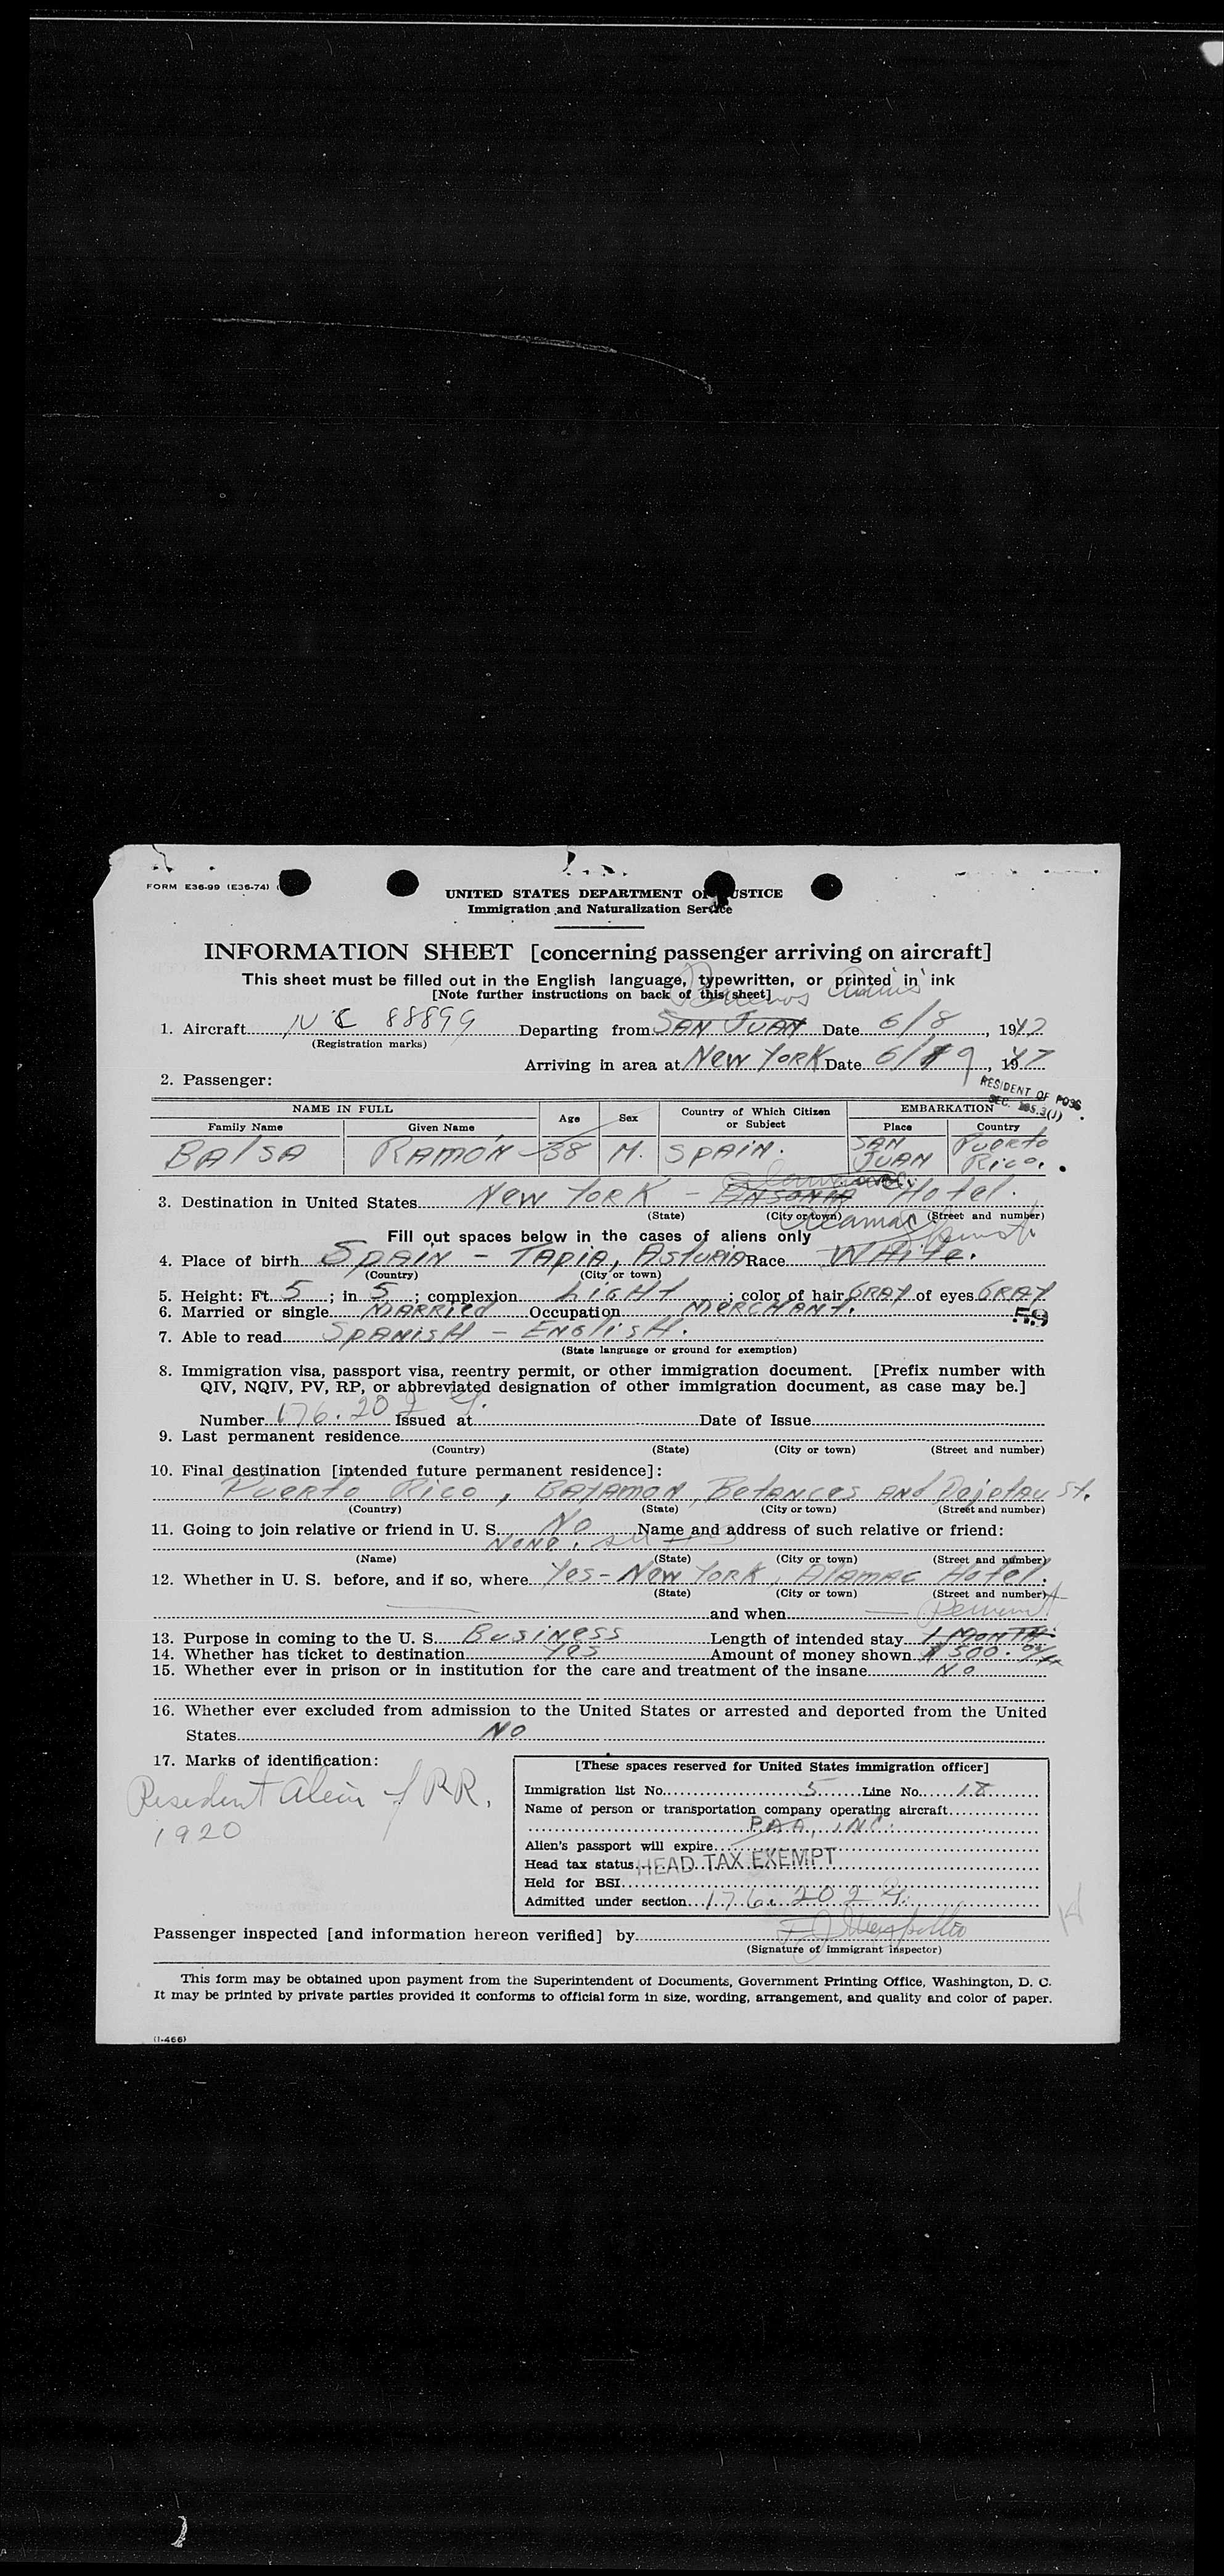 FORM E36-99 (E36-74)
UNITED STATES DEPARTMENT OF JUSTICE
Immigration and Naturalization Service
INFORMATION SHEET [concerning passenger arriving on aircraft]
This sheet must be filled out in the English language, typewritten, or printed in ink
[Note further instructions on back of this sheet]
Buenos Aires
1. Aircraft NC 88899 Departing from SAN JUAN Date 6/8, 1947
(Registration marks)
Arriving in area at New York Date 6/9, 1947
2. Passenger:
RESIDENT OF POSS
SEC.
NAME IN FULL Age Sex Country of Which Citizen or Subject EMBARKATION
Family Name Given Name Place Country
BALSA RAMÓN 38 M. SPAIN. SAN JUAN Puerto Rico.
3. Destination in United States New York - Hotel.
Alamac
(State) (City or town) (Street and number)
Fill out spaces below in the cases of aliens only
Spanish
4. Place of birth SPAIN - TAPIA, ASTURIA Race White.
(Country) (City or town)
5. Height: Ft. 5; in 5; complexion LIGHT; color of hair GRAY of eyes GRAY
6. Married or single MARRIED Occupation MERCHANT.
59
7. Able to read SPANISH - ENGLISH.
(State language or ground for exemption)
8. Immigration visa, passport visa, reentry permit, or other immigration document. [Prefix number with
QIV, NQIV, PV, RP, or abbreviated designation of other immigration document, as case may be.]
Number 176.202 Issued at Date of Issue
9. Last permanent residence
(Country) (State) (City or town) (Street and number)
10. Final destination [intended future permanent residence]:
Puerto Rico, BAYAMON, Betances AND Degetau St.
(Country) (State) (City or town) (Street and number)
11. Going to join relative or friend in U. S. No Name and address of such relative or friend:
NONE.
(Name) (State) (City or town) (Street and number)
12. Whether in U. S. before, and if so, where Yes - New York, Alamac Hotel.
(State) (City or town) (Street and number)
and when
13. Purpose in coming to the U. S. Business Length of intended stay 1 MONTH.
14. Whether has ticket to destination Yes Amount of money shown $ 500.
15. Whether ever in prison or in institution for the care and treatment of the insane No
16. Whether ever excluded from admission to the United States or arrested and deported from the United
States No
17. Marks of identification:
Resident Alien of P.R.
1920
[These spaces reserved for United States immigration officer]
Immigration list No. 5 Line No. 18
Name of person or transportation company operating aircraft
P.A.A., INC.
Alien's passport will expire
Head tax status HEAD TAX EXEMPT
Held for BSI
Admitted under section 176.202
Passenger inspected [and information hereon verified] by
(Signature of immigrant inspector)
This form may be obtained upon payment from the Superintendent of Documents, Government Printing Office, Washington, D. C.
It may be printed by private parties provided it conforms to official form in size, wording, arrangement, and quality and color of paper.
(1-466)